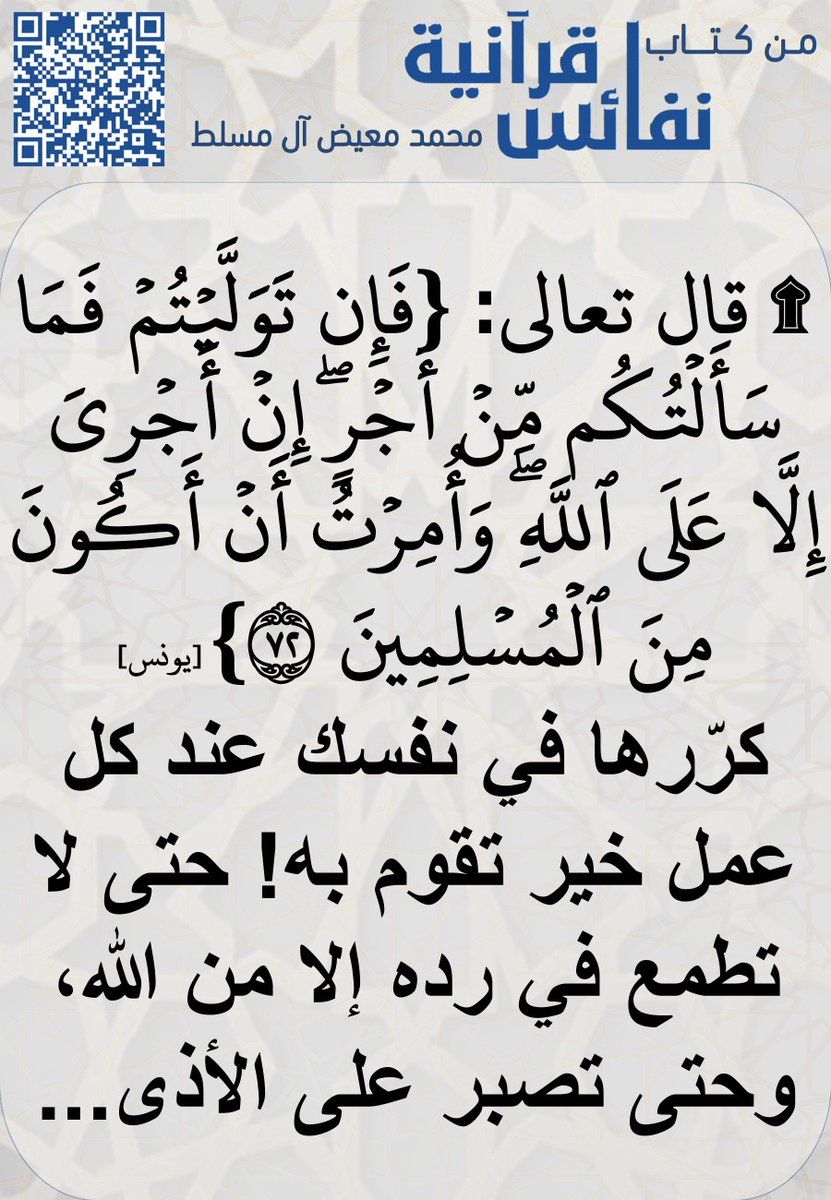 من كتاب
نفائس قرآنية
محمد معيض آل مسلط
۩ قال تعالى: {فَإِن تَوَلَّيۡتُمۡ فَمَا
سَأَلۡتُكُم مِّنۡ أَجۡرٍۖ إِنۡ أَجۡرِيَ
إِلَّا عَلَى ٱللَّهِۖ وَأُمِرۡتُ أَنۡ أَكُونَ
مِنَ ٱلۡمُسۡلِمِينَ ٧٢} [يونس]
كرّرها في نفسك عند كل
عمل خير تقوم به! حتى لا
تطمع في رده إلا من الله،
وحتى تصبر على الأذى...